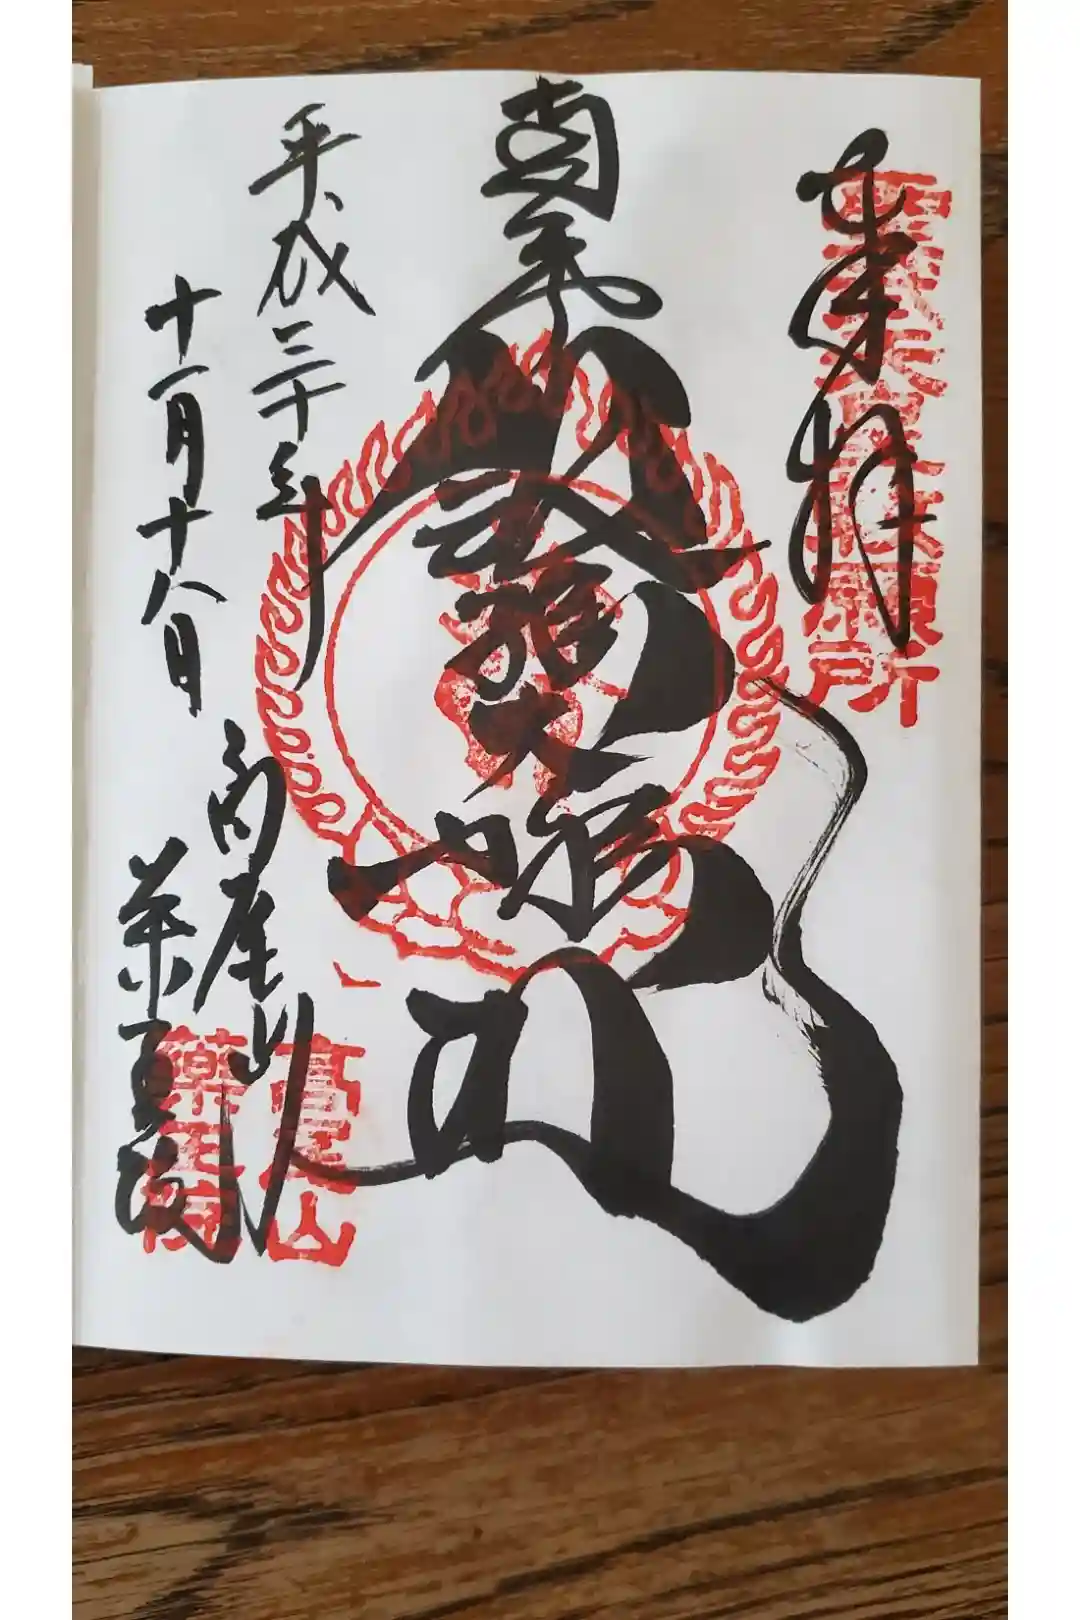 奉拝
聖武天皇勅願所
南無飯縄大権現
平成三十年
十一月十八日
高尾山
薬王院
高尾山
薬王院